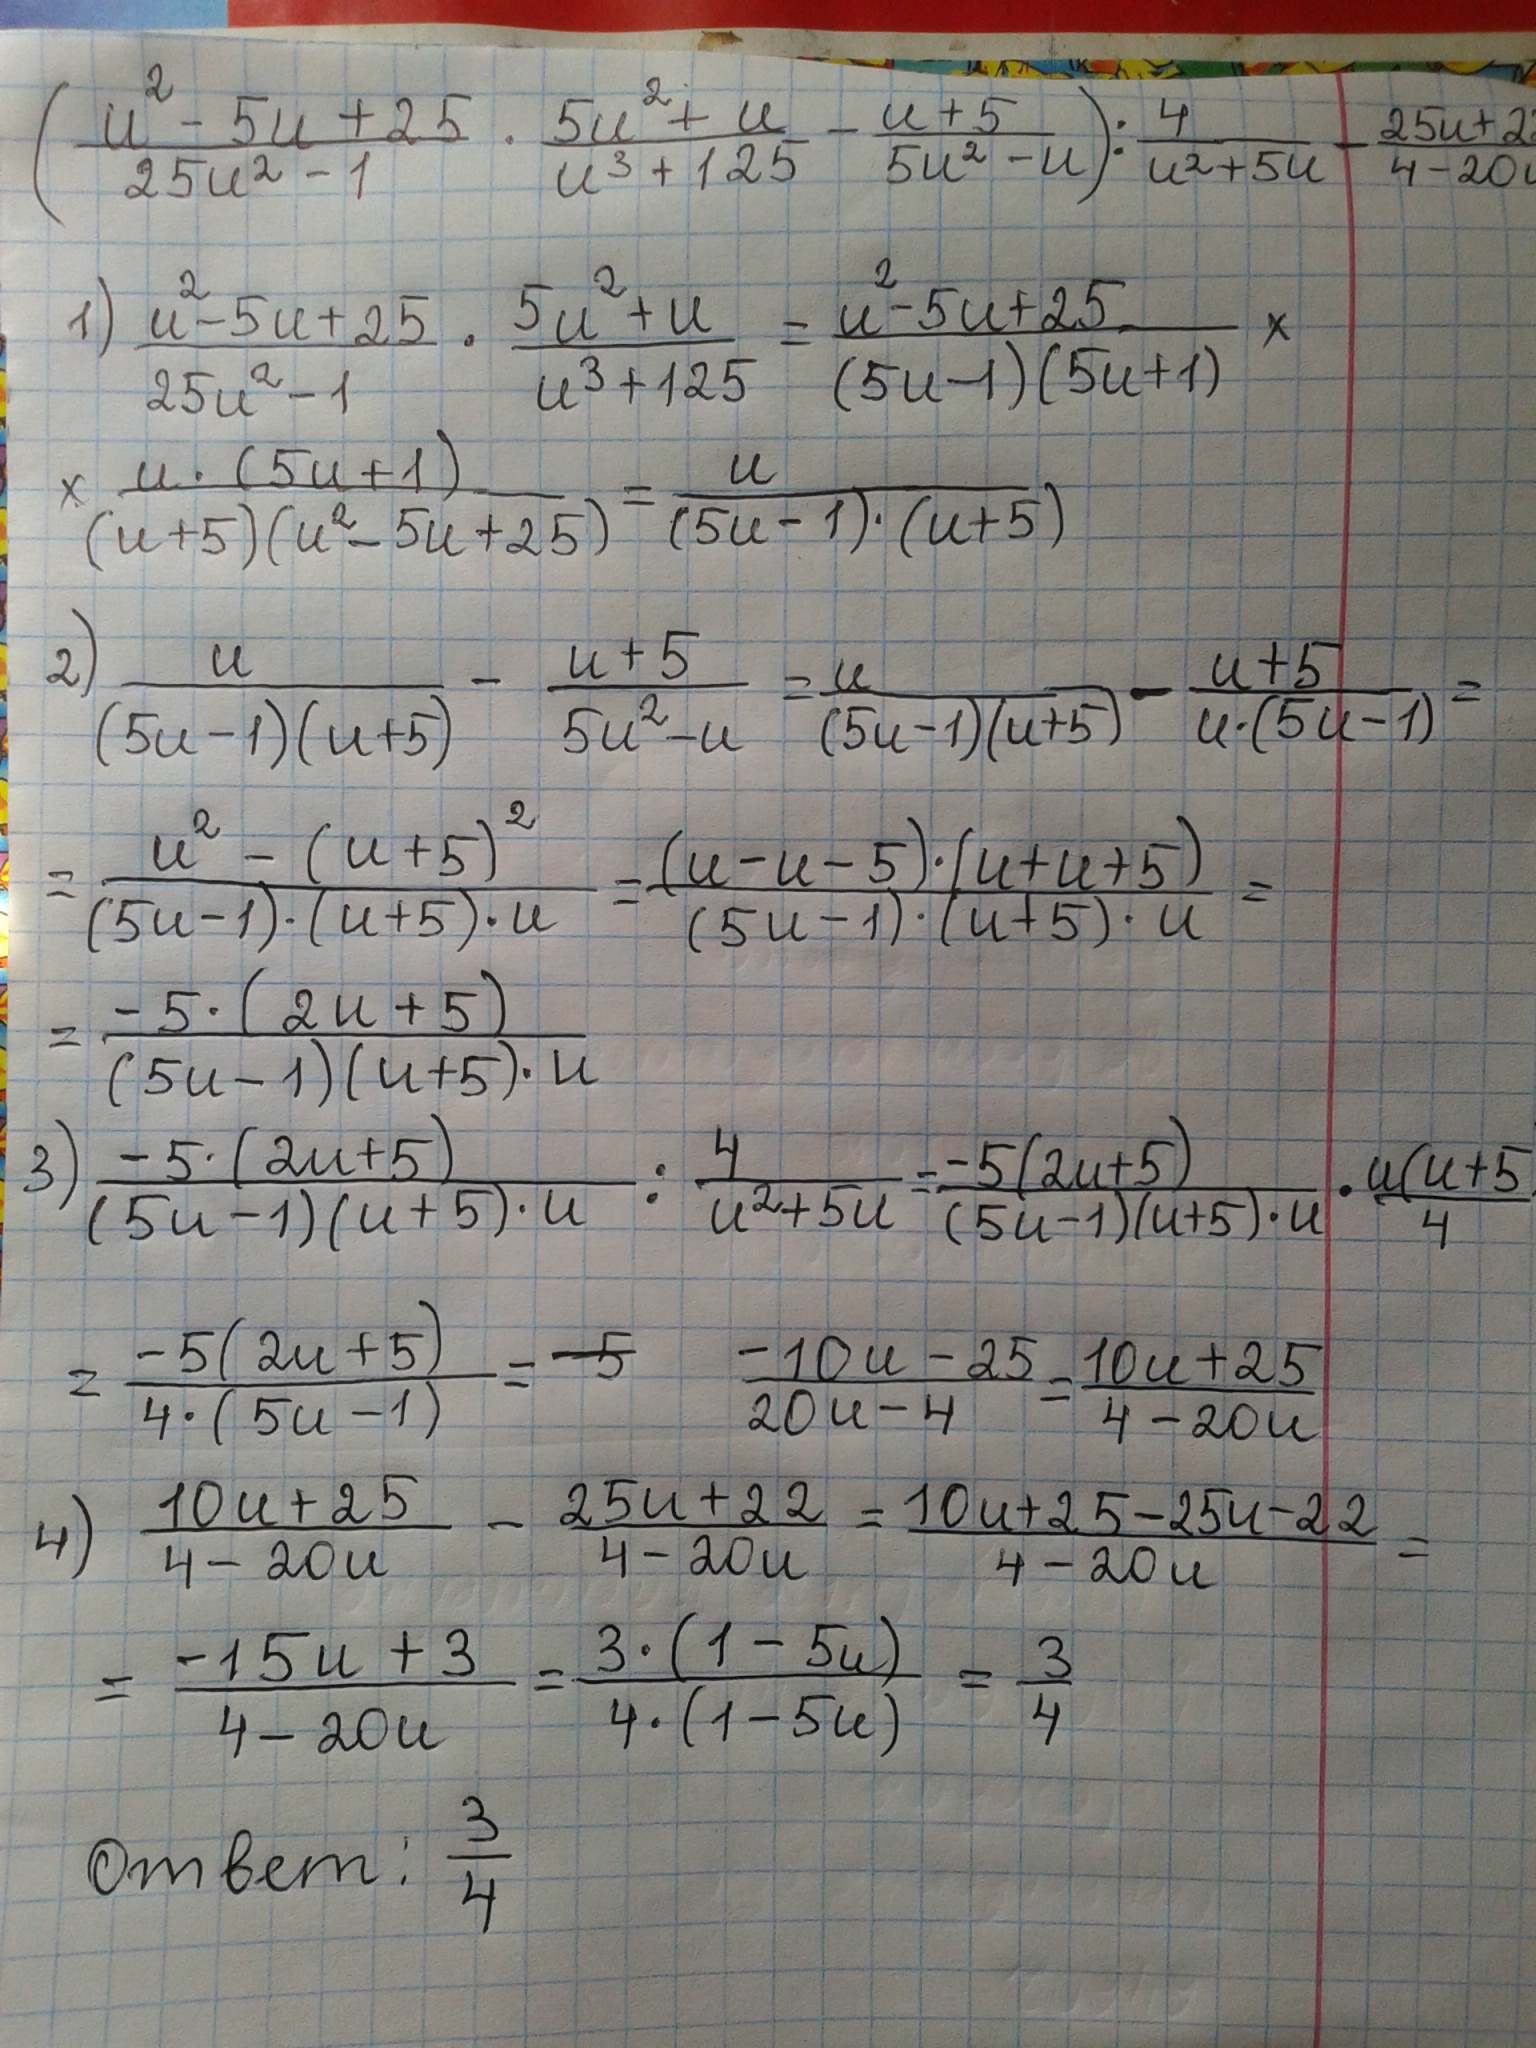 (u² - 5u + 25 / 25u² - 1 · 5u² + u / u³ + 125 - u + 5 / 5u² - u) : 4 / u² + 5u - 25u + 2 / 4 - 20u
1) u² - 5u + 25 / 25u² - 1 · 5u² + u / u³ + 125 = u² - 5u + 25 / (5u - 1)(5u + 1) ×
× u · (5u + 1) / (u + 5)(u² - 5u + 25) = u / (5u - 1) · (u + 5)
2) u / (5u - 1)(u + 5) - u + 5 / 5u² - u = u / (5u - 1)(u + 5) - u + 5 / u · (5u - 1) =
= u² - (u + 5)² / (5u - 1) · (u + 5) · u = (u - u - 5) · (u + u + 5) / (5u - 1) · (u + 5) · u =
= -5 · (2u + 5) / (5u - 1)(u + 5) · u
3) -5 · (2u + 5) / (5u - 1)(u + 5) · u : 4 / u² + 5u = -5(2u + 5) / (5u - 1)(u + 5) · u · u(u + 5) / 4
= -5(2u + 5) / 4 · (5u - 1) = -5 -10u - 25 / 20u - 4 = 10u + 25 / 4 - 20u
4) 10u + 25 / 4 - 20u - 25u + 22 / 4 - 20u = 10u + 25 - 25u - 22 / 4 - 20u =
= -15u + 3 / 4 - 20u = 3 · (1 - 5u) / 4 · (1 - 5u) = 3 / 4
Ответ: 3 / 4